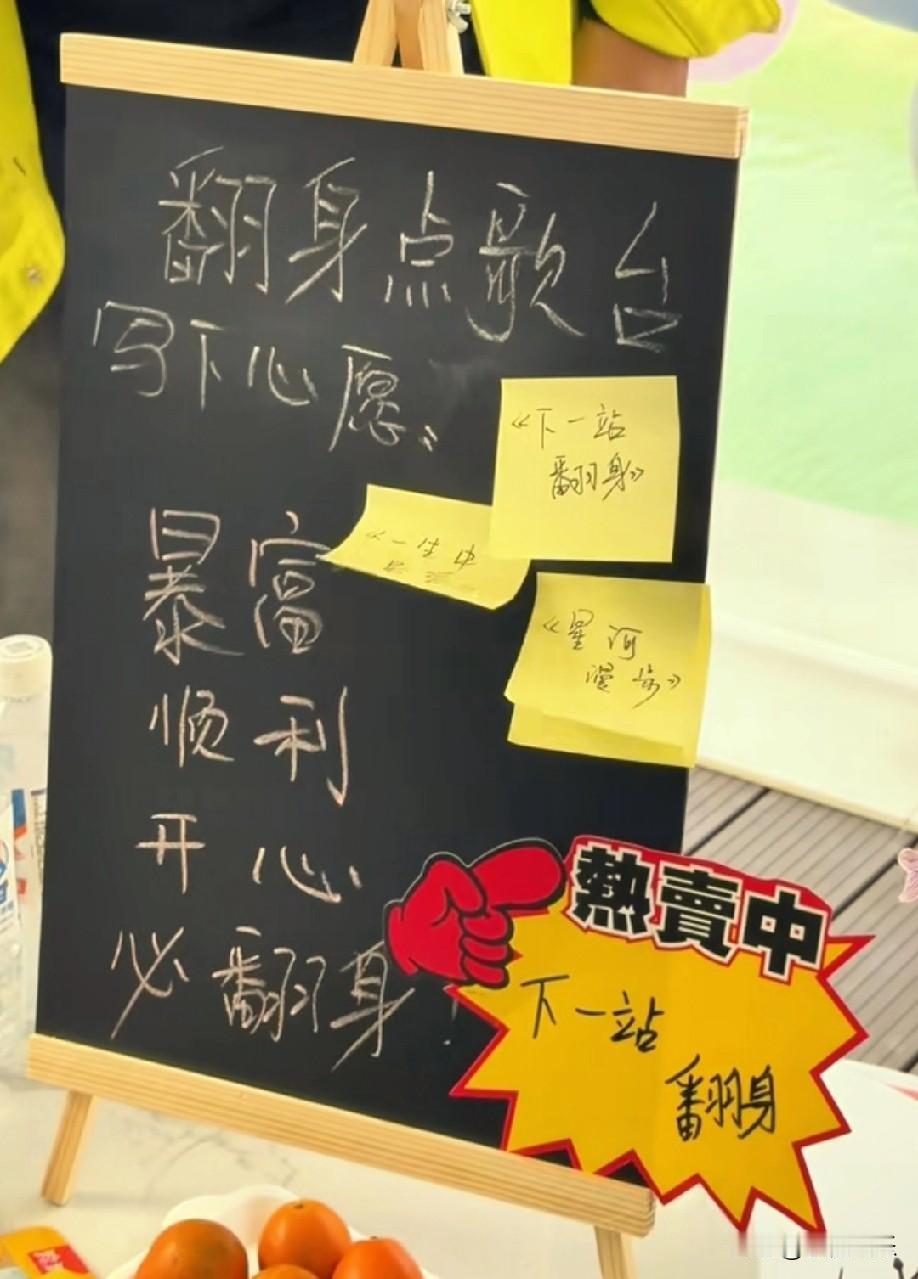 翻身点歌台
写下心愿》
《下一站
翻身》
《一生中
《星河
漫步》
暴富
顺利
开心
必翻身！
熱賣中
下一站
翻身